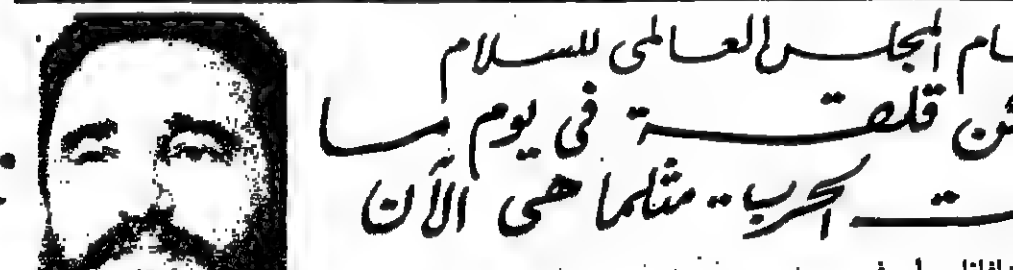 ام المجلس العالمى للسلام
ئن قلقة فى يوم ما
ت الحرب .. مثلما هى الآن